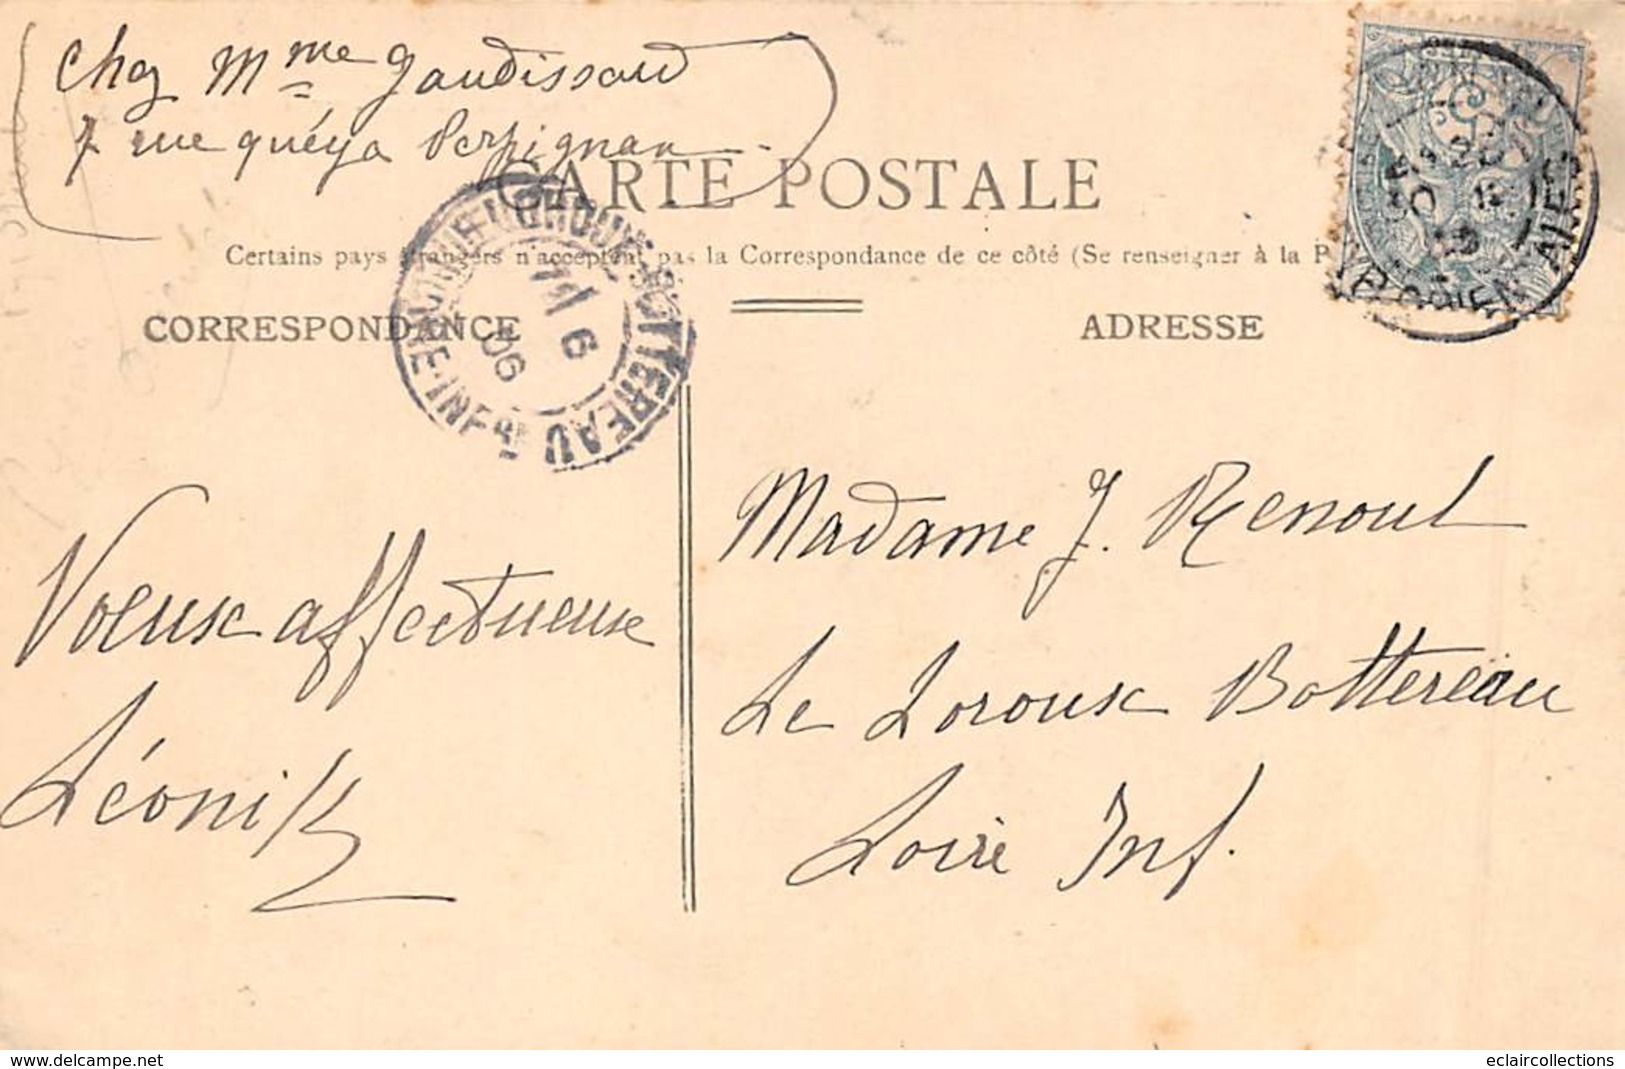 Chez Mme Gaudissard
7 rue quéya Perpignan
CARTE POSTALE
Certains pays étrangers n'acceptent pas la Correspondance de ce côté (Se renseigner à la P
CORRESPONDANCE
ADRESSE
LE LOROUX-BOTTEREAU
LOIRE-INFRE
6
06
PYR. ORIENTALES
Voeux affectueux
Léoni K
Madame J. Renoul
Le Loroux Bottereau
Loire Inf.
delcampe.net
eclaircollections